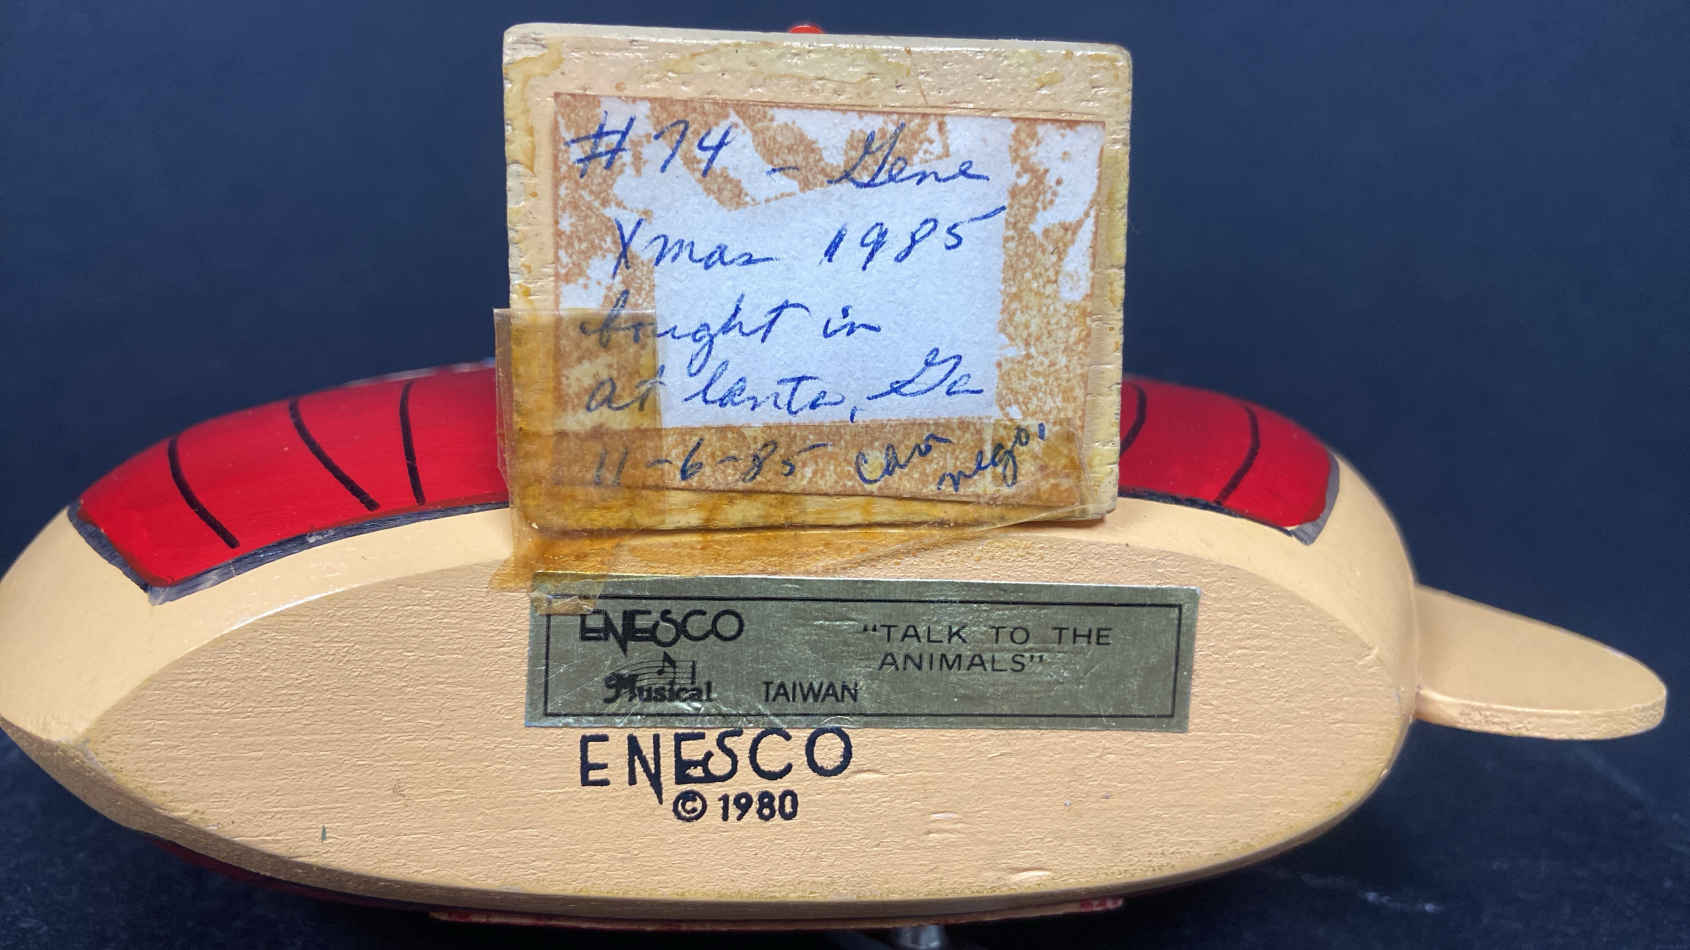 #74 - Gene
Xmas 1985
bought in
at lanta, Ga
11-6-85
ENESCO
Musical
TAIWAN
"TALK TO THE
ANIMALS"
ENESCO
© 1980